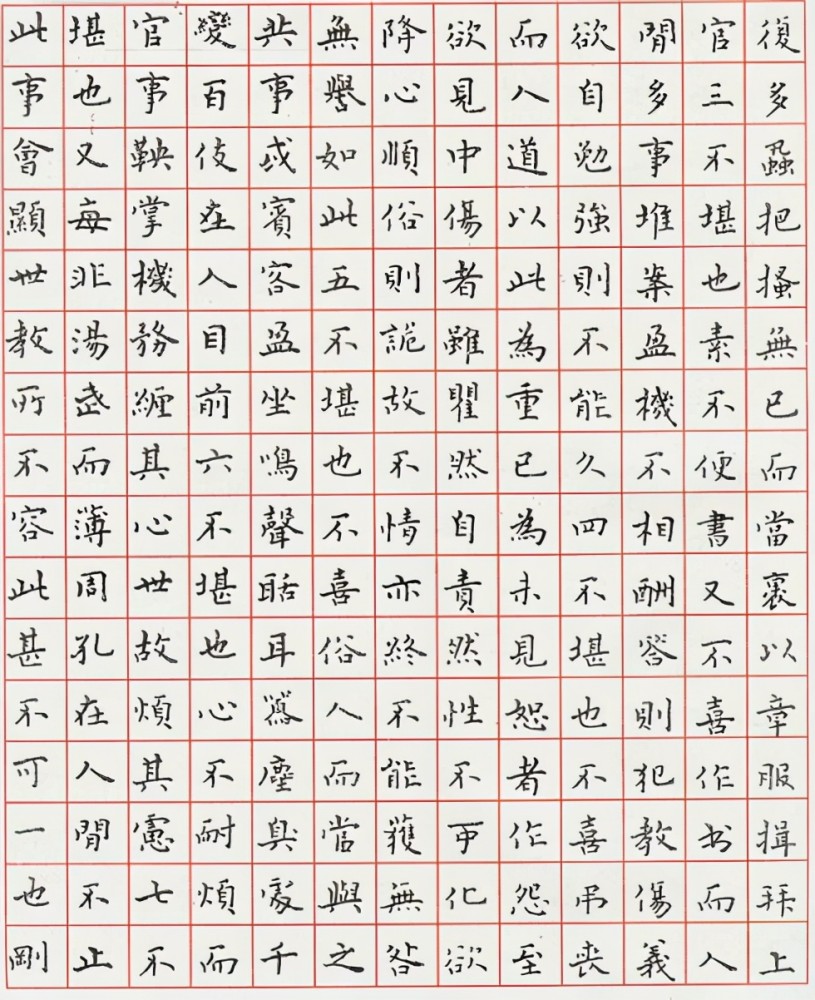 復多蝨把搔無已而當裹以章服揖拜上
官三不堪也素不便書又不喜作书而人
閒多事堆案盈機不相酬答則犯教傷義
欲自勉強則不能久四不堪也不喜吊喪
而人道以此為重已為未見恕者作怨至
欲見中傷者雖瞿然自責然性不可化欲
降心順俗則詭故不情亦終不能獲無咎
無譽如此五不堪也不喜俗人而當與之
共事或賓客盈坐鳴聲聒耳囂塵臭處千
變百伎在人目前六不堪也心不耐煩而
官事鞅掌機務纏其心世故煩其慮七不
堪也又每非湯武而薄周孔在人閒不止
此事會顯世教所不容此甚不可一也剛